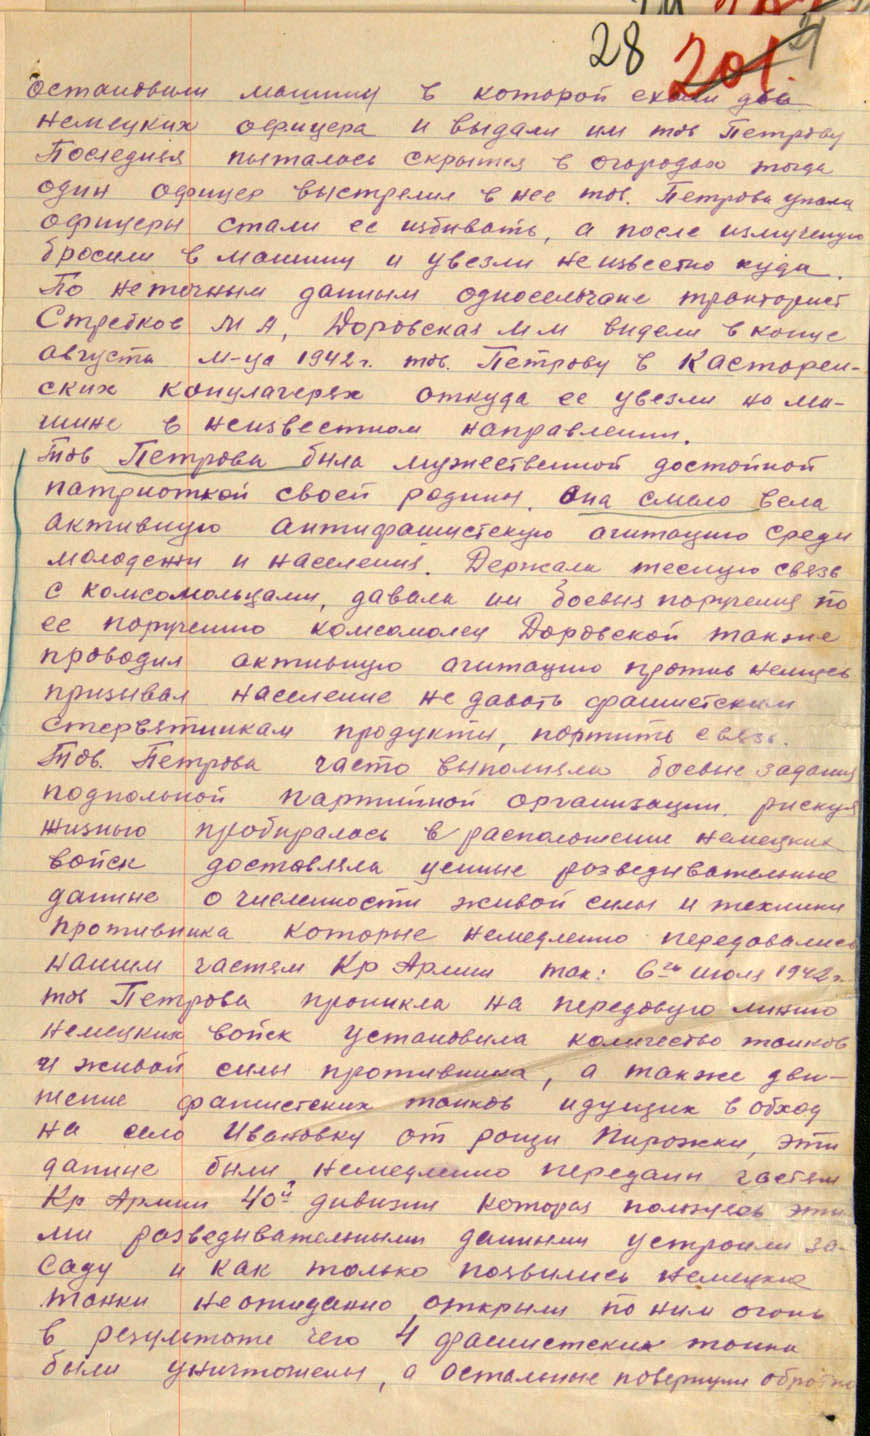 28 201. 21
остановили машину в которой ехали два
немецких офицера и выдали им тов Петрову
Последняя пыталась скрытся в огородах тогда
один офицер выстрелил в нее тов. Петрова упала
офицеры стали ее избивать, а после измученую
бросили в машину и увезли неизвестно куда.
По неточным данным односельчане тракторист
Стребков М А, Доровская М М видели в конце
августа м-ца 1942 г. тов. Петрову в Касторен-
ских концлагерях откуда ее увезли на ма-
шине в неизвестном направлении.
Тов Петрова была мужественной достойной
патриоткой своей родины. Она смело вела
активную антифашистскую агитацию среди
молодежи и населения. Держала тесную связь
с комсомольцами, давала им боевыя поручения по
ее поручению комсомолец Доровской также
проводил активную агитацию против немцев
призывал население не давать фашистским
стервятникам продукты, портить связь.
Тов. Петрова часто выполняла боевые задания
подпольной партийной организации, рискуя
жизнью пробиралась в расположение немецких
войск доставляла ценные разведывательные
данные о численности живой силы и техники
противника которые немедленно передавались
нашим частям Кр Армии так: 6го июля 1942 г.
тов Петрова проникла на передовую линию
немецких войск установила количество танков
и живой силы противника, а также дви-
жение фашистских танков идущих в обход
на село Ивановку от рощи Пирожки, эти
данные были немедленно переданы частям
Кр Армии 40й дивизии которая пользуясь эти-
ми разведывательными данными устроили за-
саду и как только появились немецкие
танки неожиданно открыли по ним огонь
в результате чего 4 фашистских танка
были уничтожены, а остальные повернули обратно